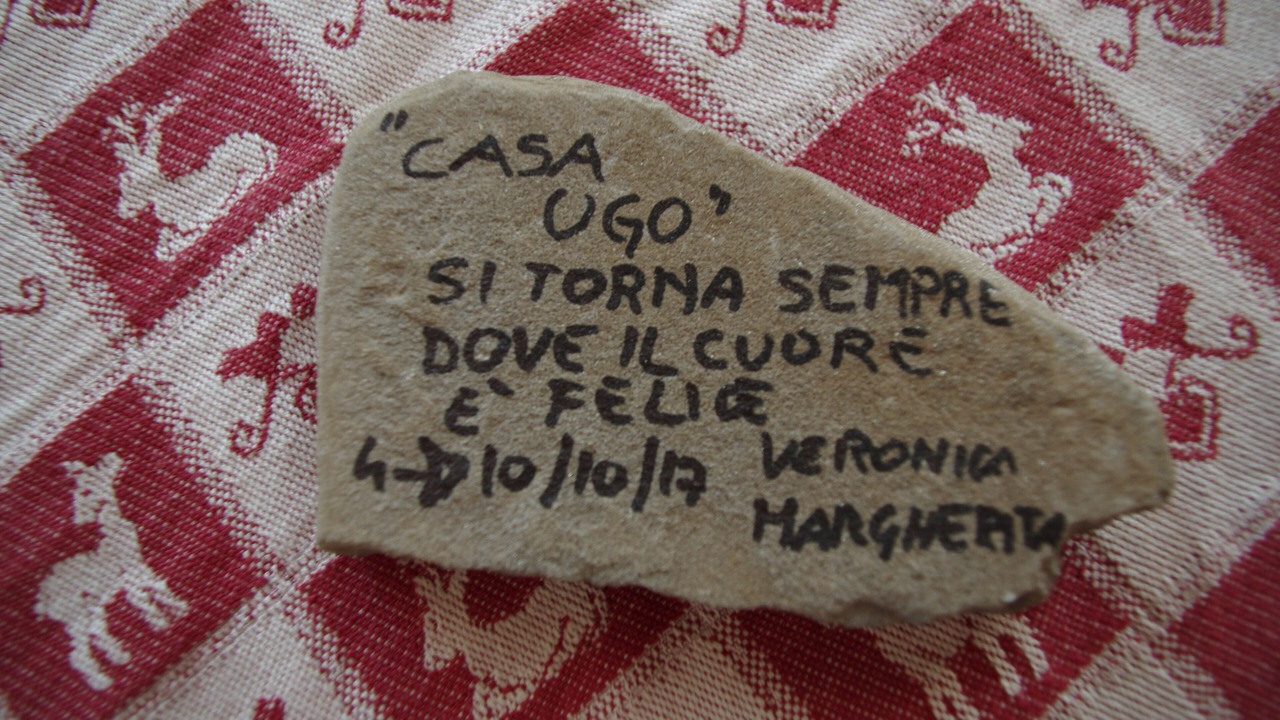 "CASA
UGO"
SI TORNA SEMPRE
DOVE IL CUORE
È FELICE
4→10/10/17 VERONICA
MARGHERITA